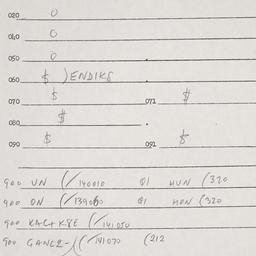 020 0
040 0
050 0
060 $ )ENDIKS
070 $ 071 $
080 $
090 $ 091 $
900 UN (/140010 $1 HUN (320
900 ON (/139060 $1 HON (320
900 KAC+KSE (/141050
900 GANCZ- (/141070 (212